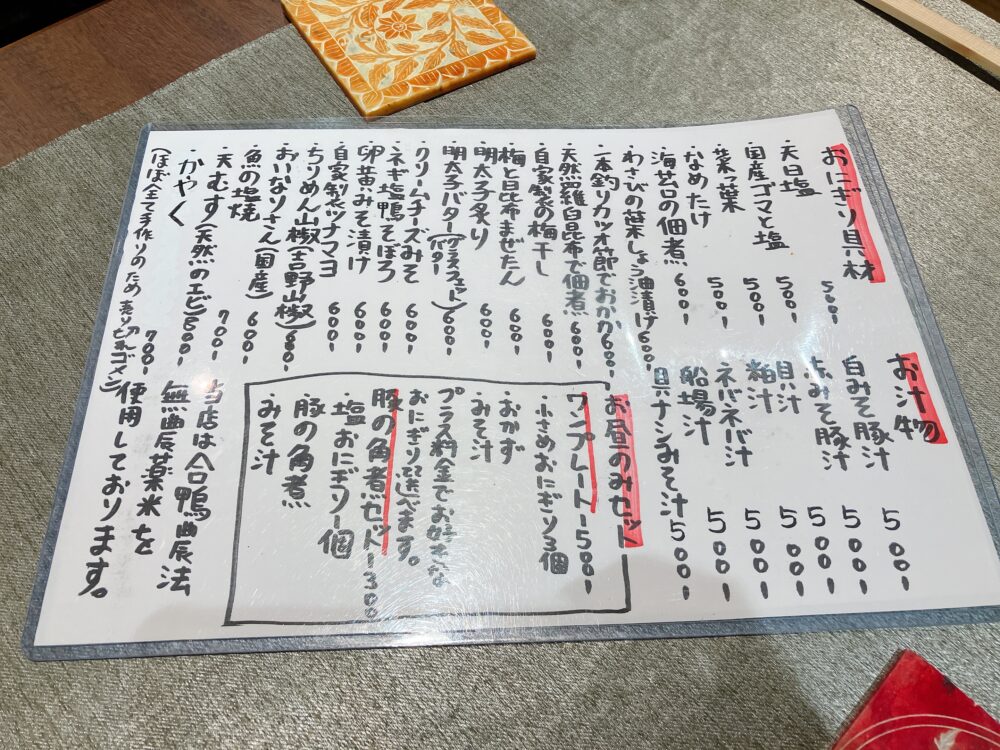 おにぎり具材
・天日塩 500-
・国産ゴマと塩 500-
・菜ノ葉 500-
・なめたけ 500-
・海苔の佃煮 600-
・わさびの葉しょう油漬け600-
・一本釣りカツオ節でおかか600-
・天然羅臼昆布で佃煮 600-
・自家製の梅干し 600-
・梅と昆布まぜたん 600-
・明太子炙り 600-
・明太子バター(グラスフェットバター)600-
・クリームチーズみそ 600-
・ネギ塩鴨そぼろ 600-
・卵黄みそ漬け 600-
・自家製ツナマヨ 600-
・ちりめん山椒(吉野山椒)600-
・おいなりさん(国産) 600-
・魚の塩焼 600-
・天むす(天然のエビ) 700-
・かやく 500-
(ほぼ全て手作りのため売り切れゴメン) 700-
お汁物
白みそ豚汁 500-
赤みそ豚汁 500-
貝汁 500-
粕汁 500-
ネバネバ汁 500-
船場汁 500-
具ナシみそ汁 500-
お昼のみセット
ワンプレート1500-
・小さめおにぎり3個
・おかず
・みそ汁
プラス料金でお好きな
おにぎり選べます。
豚の角煮セット1300
・塩おにぎり1個
豚の角煮
・みそ汁
当店は合鴨農法
無農薬米を
使用しております。